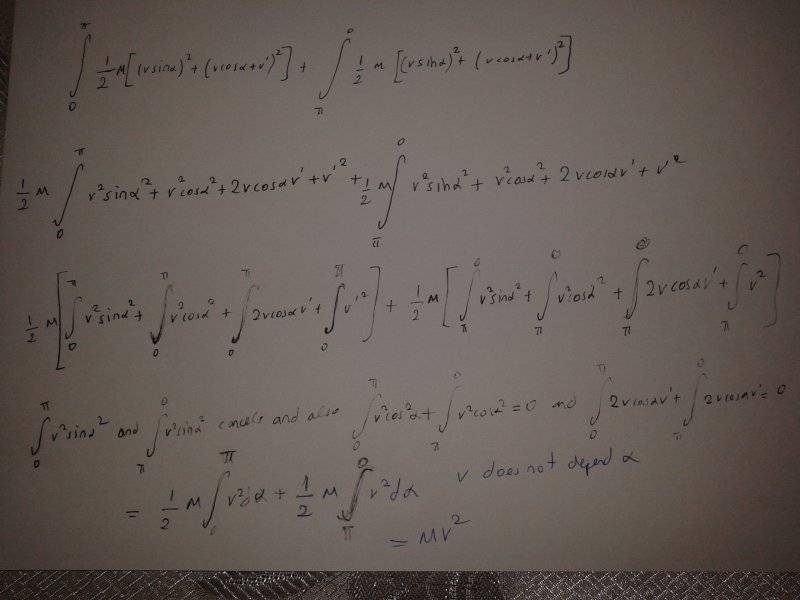 ∫₀^π 1/2 M[(v sinα)² + (v cosα + v')²] + ∫_π^0 1/2 M [(v sinα)² + (v cosα + v')²]
1/2 M ∫₀^π v² sinα² + v² cosα² + 2v cosα v' + v'² + 1/2 M ∫_π^0 v² sinα² + v² cosα² + 2v cosα v' + v'²
1/2 M [∫₀^π v² sinα² + ∫₀^π v² cosα² + ∫₀^π 2v cosα v' + ∫₀^π v'²] + 1/2 M [∫_π^0 v² sinα² + ∫_π^0 v² cosα² + ∫_π^0 2v cosα v' + ∫_π^0 v²]
∫₀^π v² sinα² and ∫_π^0 v² sinα² cancels and also ∫₀^π v² cos²α + ∫_π^0 v² cosα² = 0 and ∫₀^π 2v cosα v' + ∫_π^0 2v cosα v' = 0
= 1/2 M ∫₀^π v² dα + 1/2 M ∫_π^0 v² dα v does not depend α
= Mv²